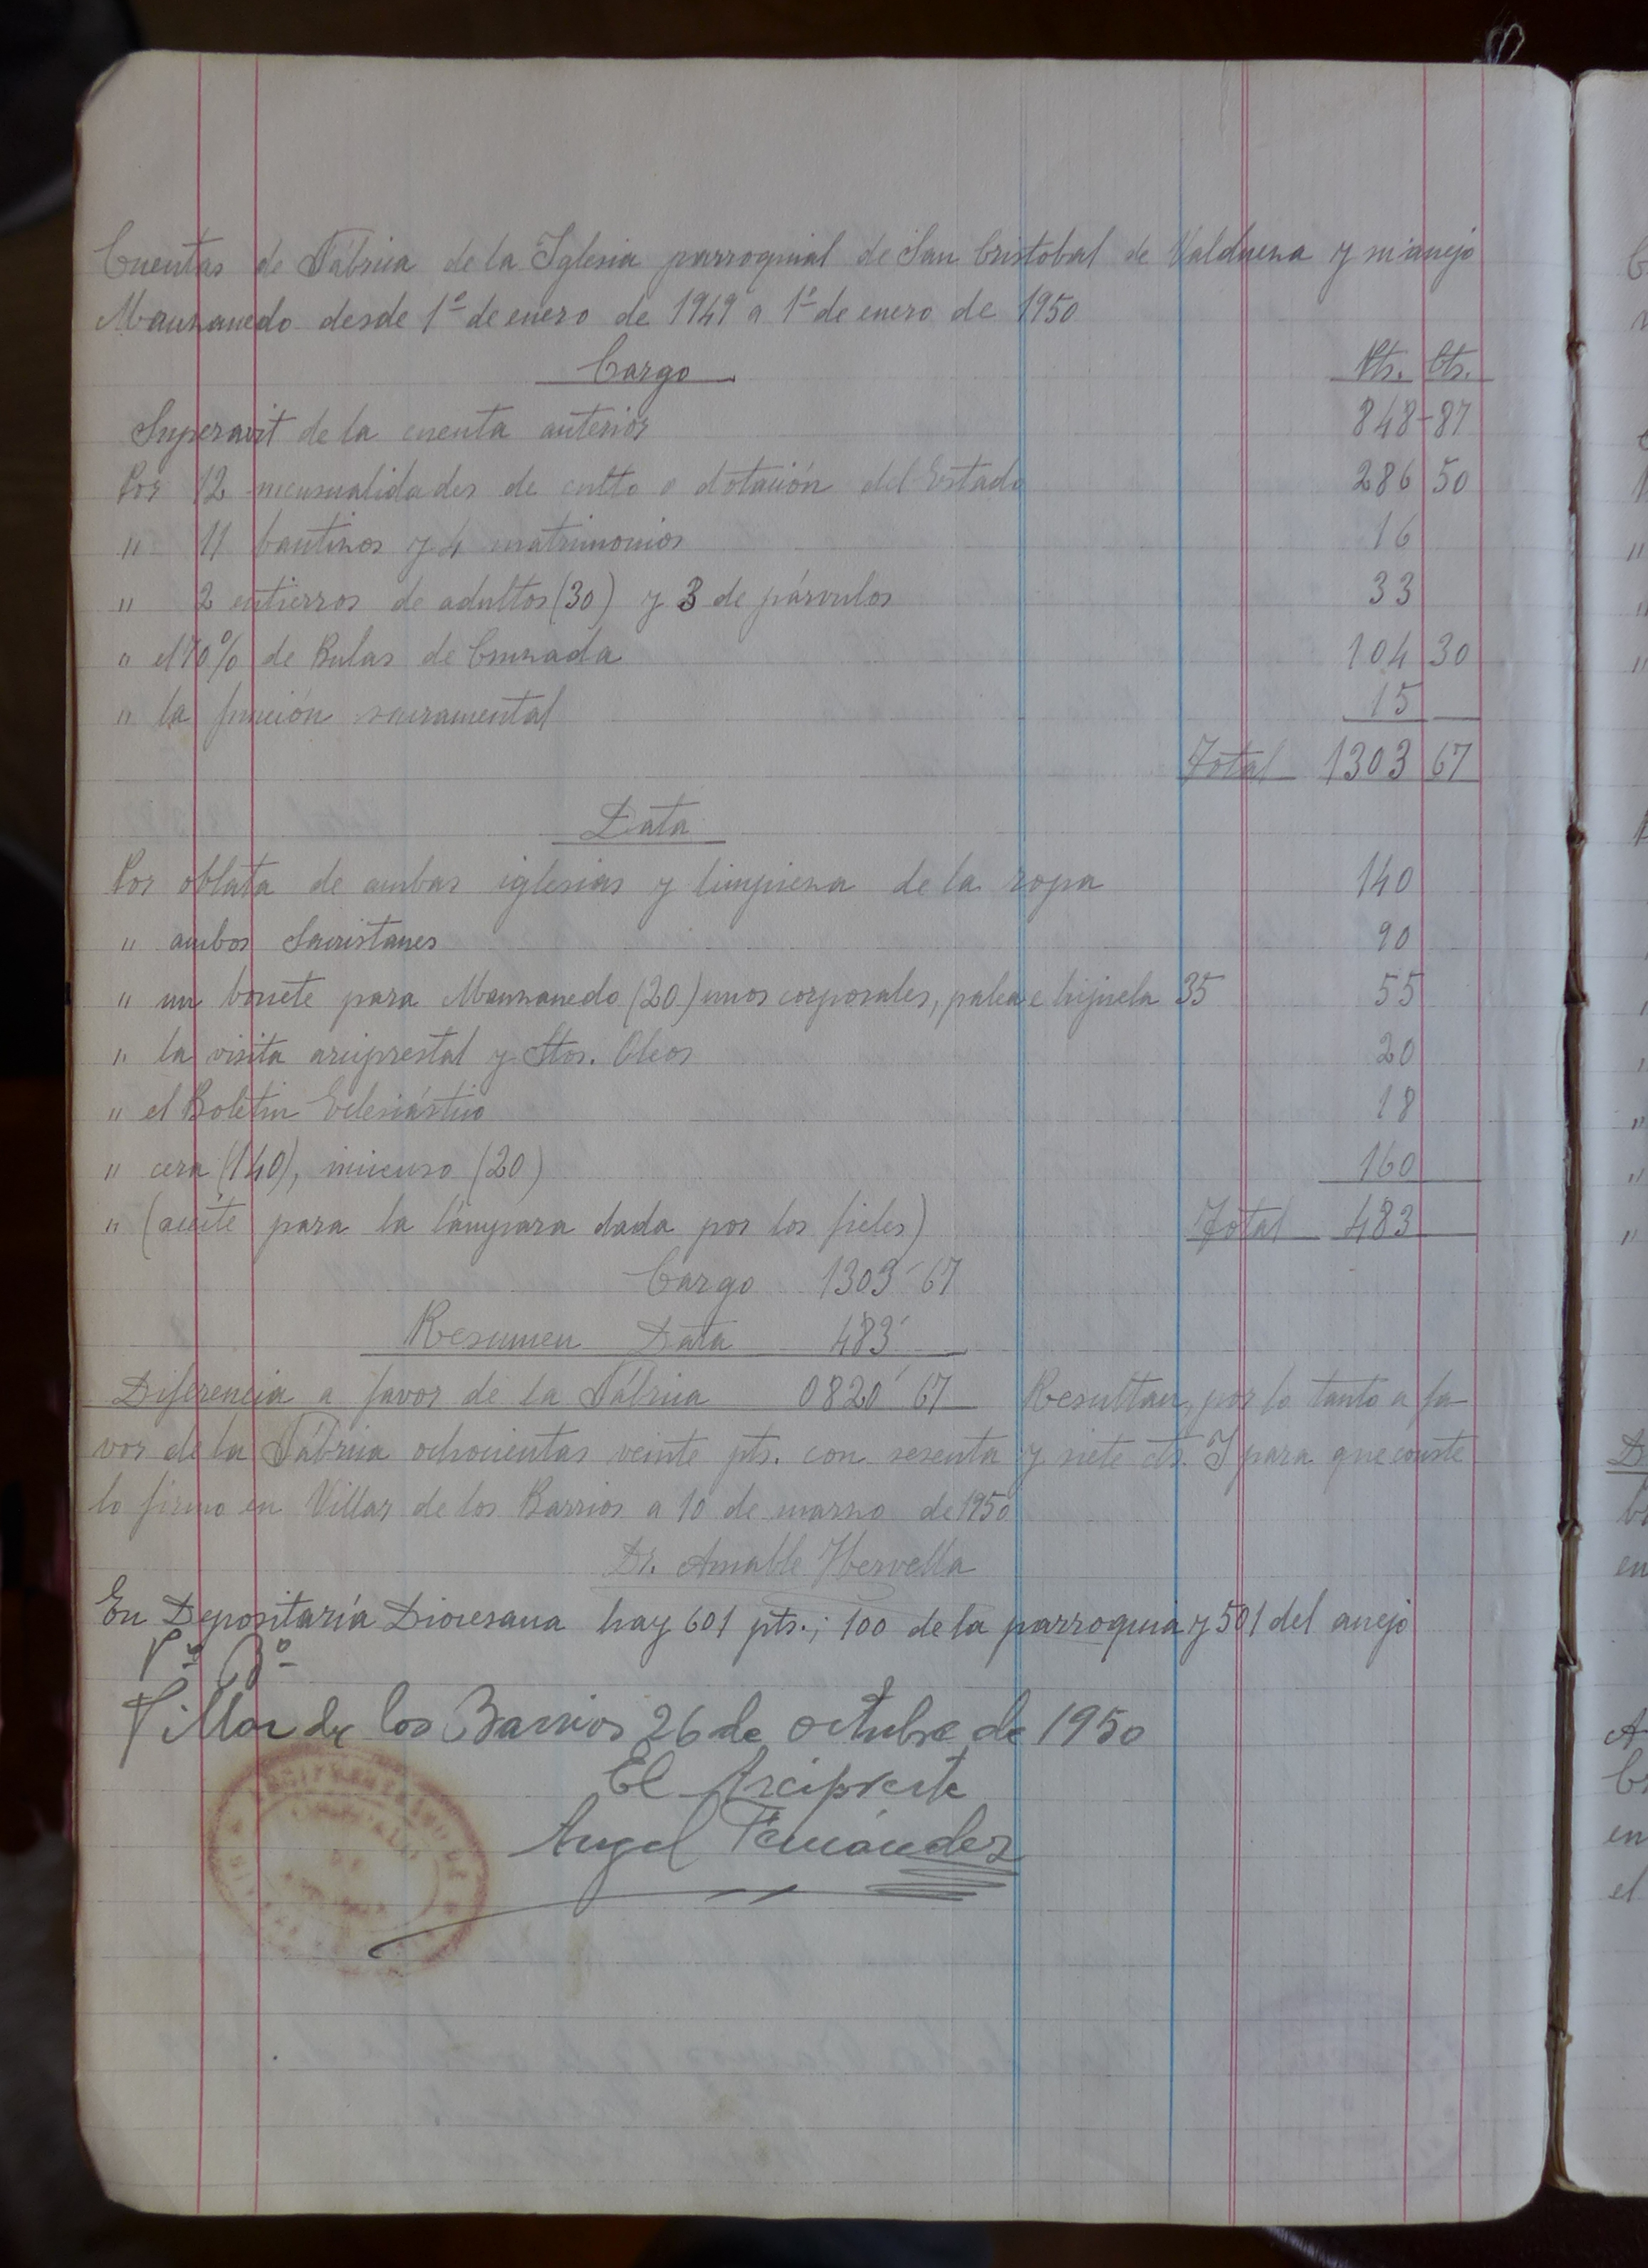 Cuentas de Fábrica de la Iglesia parroquial de San Cristobal de Valdueza y su anejo
Manzanedo desde 1º de enero de 1949 a 1º de enero de 1950
Cargo Pts. Cts.
Superavit de la cuenta anterior 848-87
Por 12 mensualidades de culto o dotación del Estado 286 50
" 11 bautizos y 4 matrimonios 16
" 2 entierros de adultos (30) y 3 de párvulos 33
" el 70% de Bulas de Cruzada 104 30
" la función sacramental 15
Total 1303 67
Data
Por oblata de ambas iglesias y limpieza de la ropa 140
" ambos Sacristanes 90
" un bonete para Manzanedo (20) unos corporales, palea e hijuela 35 55
" la visita arciprestal y Stos. Oleos 20
" el Boletin Eclesiástico 18
" cera (140), incienso (20) 160
" (aceite para la lámpara dada por los fieles) Total 483
Cargo 1303'67
Resumen Data 483'
Diferencia a favor de la Fábrica 0820'67 Resultan, por lo tanto a fa-
vor de la Fábrica ochocientas veinte pts. con sesenta y siete cts. Y para que conste
lo firmo en Villar de los Barrios a 10 de marzo de 1950
Dr. Amable Hervella
En Depositaría Diocesana hay 601 pts.; 100 de la parroquia y 501 del anejo
Vº Bº
Villar de los Barrios 26 de octubre de 1950
El Arcipreste
Angel Fernández